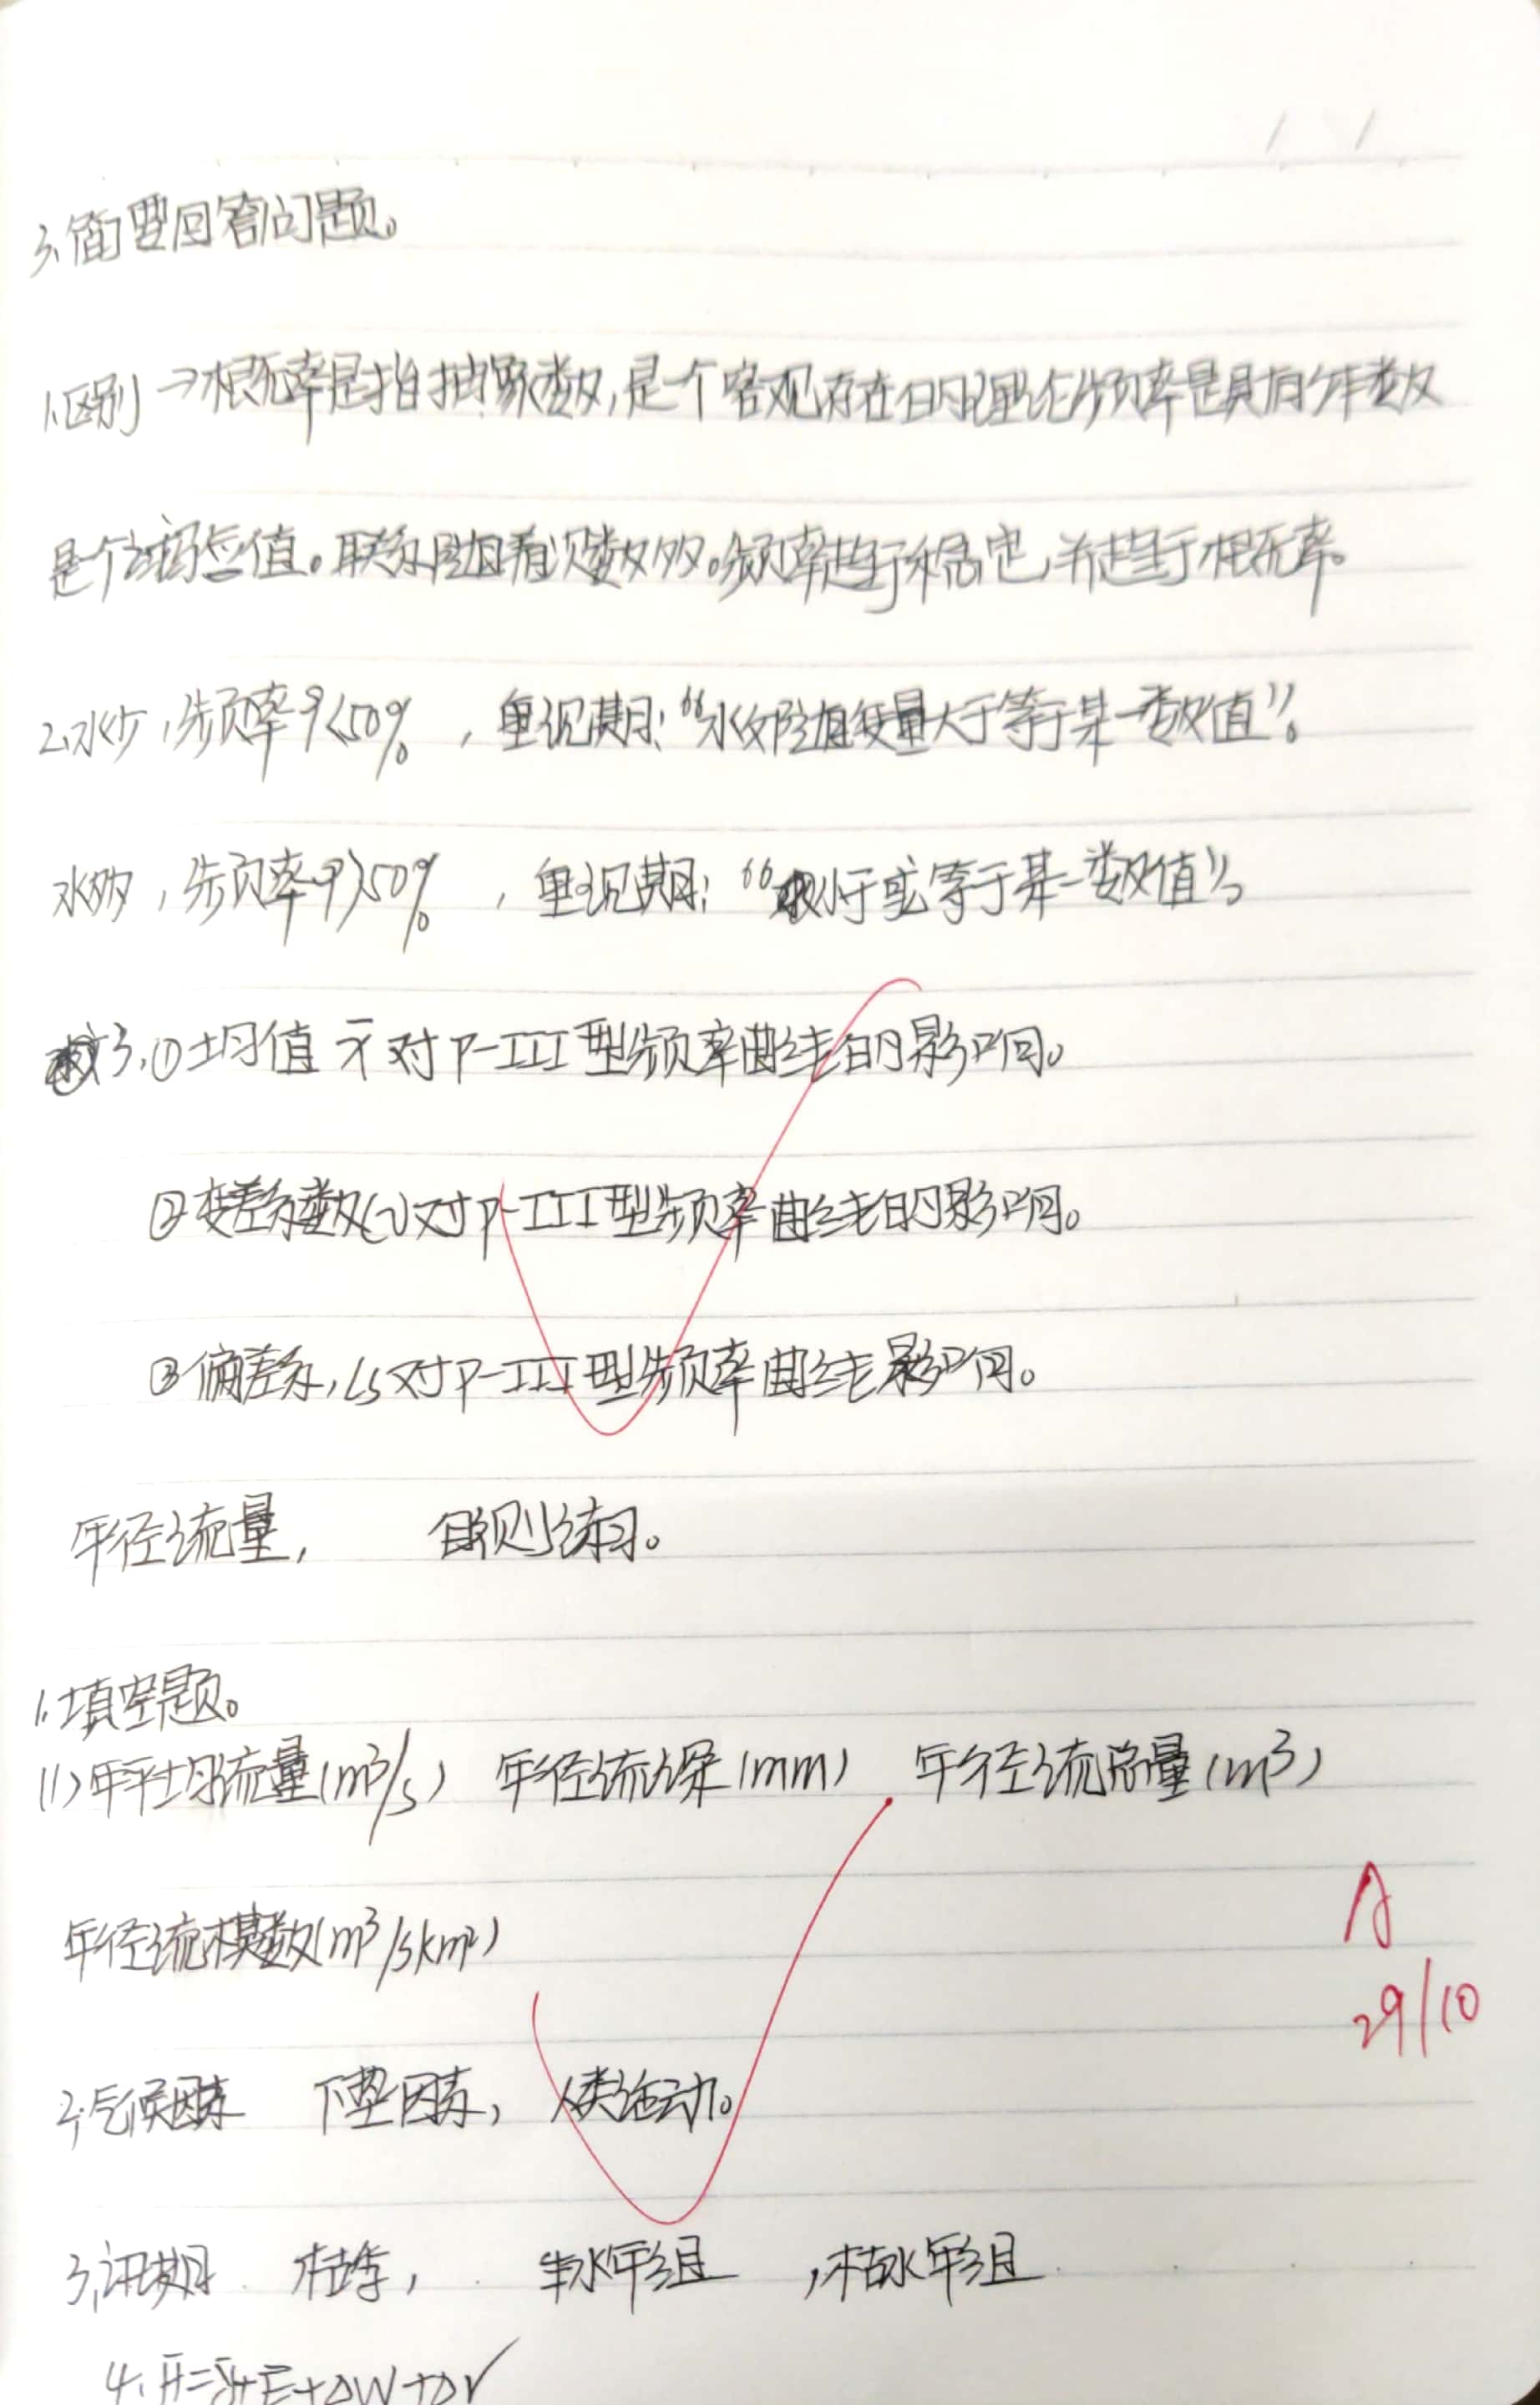 3.简要回答问题。
1.区别→概率是指抽象数,是个客观存在的理论频率是具有年数
是个经验值。联系:随着次数多。频率趋于稳定,并趋于概率。
2.水少,频率P<50%,重现期:“水文随机变量大于等于某一数值”。
水多,频率P>50%,重现期:“小于或等于某一数值”。
3.①均值x̄对P-III型频率曲线的影响。
②变差系数Cv对P-III型频率曲线的影响。
③偏差系,Cs对P-III型频率曲线影响。
年径流量, 自测练习。
1.填空题。
(1)年平均流量(m³/s) 年径流深(mm) 年径流总量(m³)
年径流模数(m³/skm²)
A
29/10
2,气候因素 下垫因素, 人类活动。
3,汛期 枯季, 丰水年组 ,枯水年组